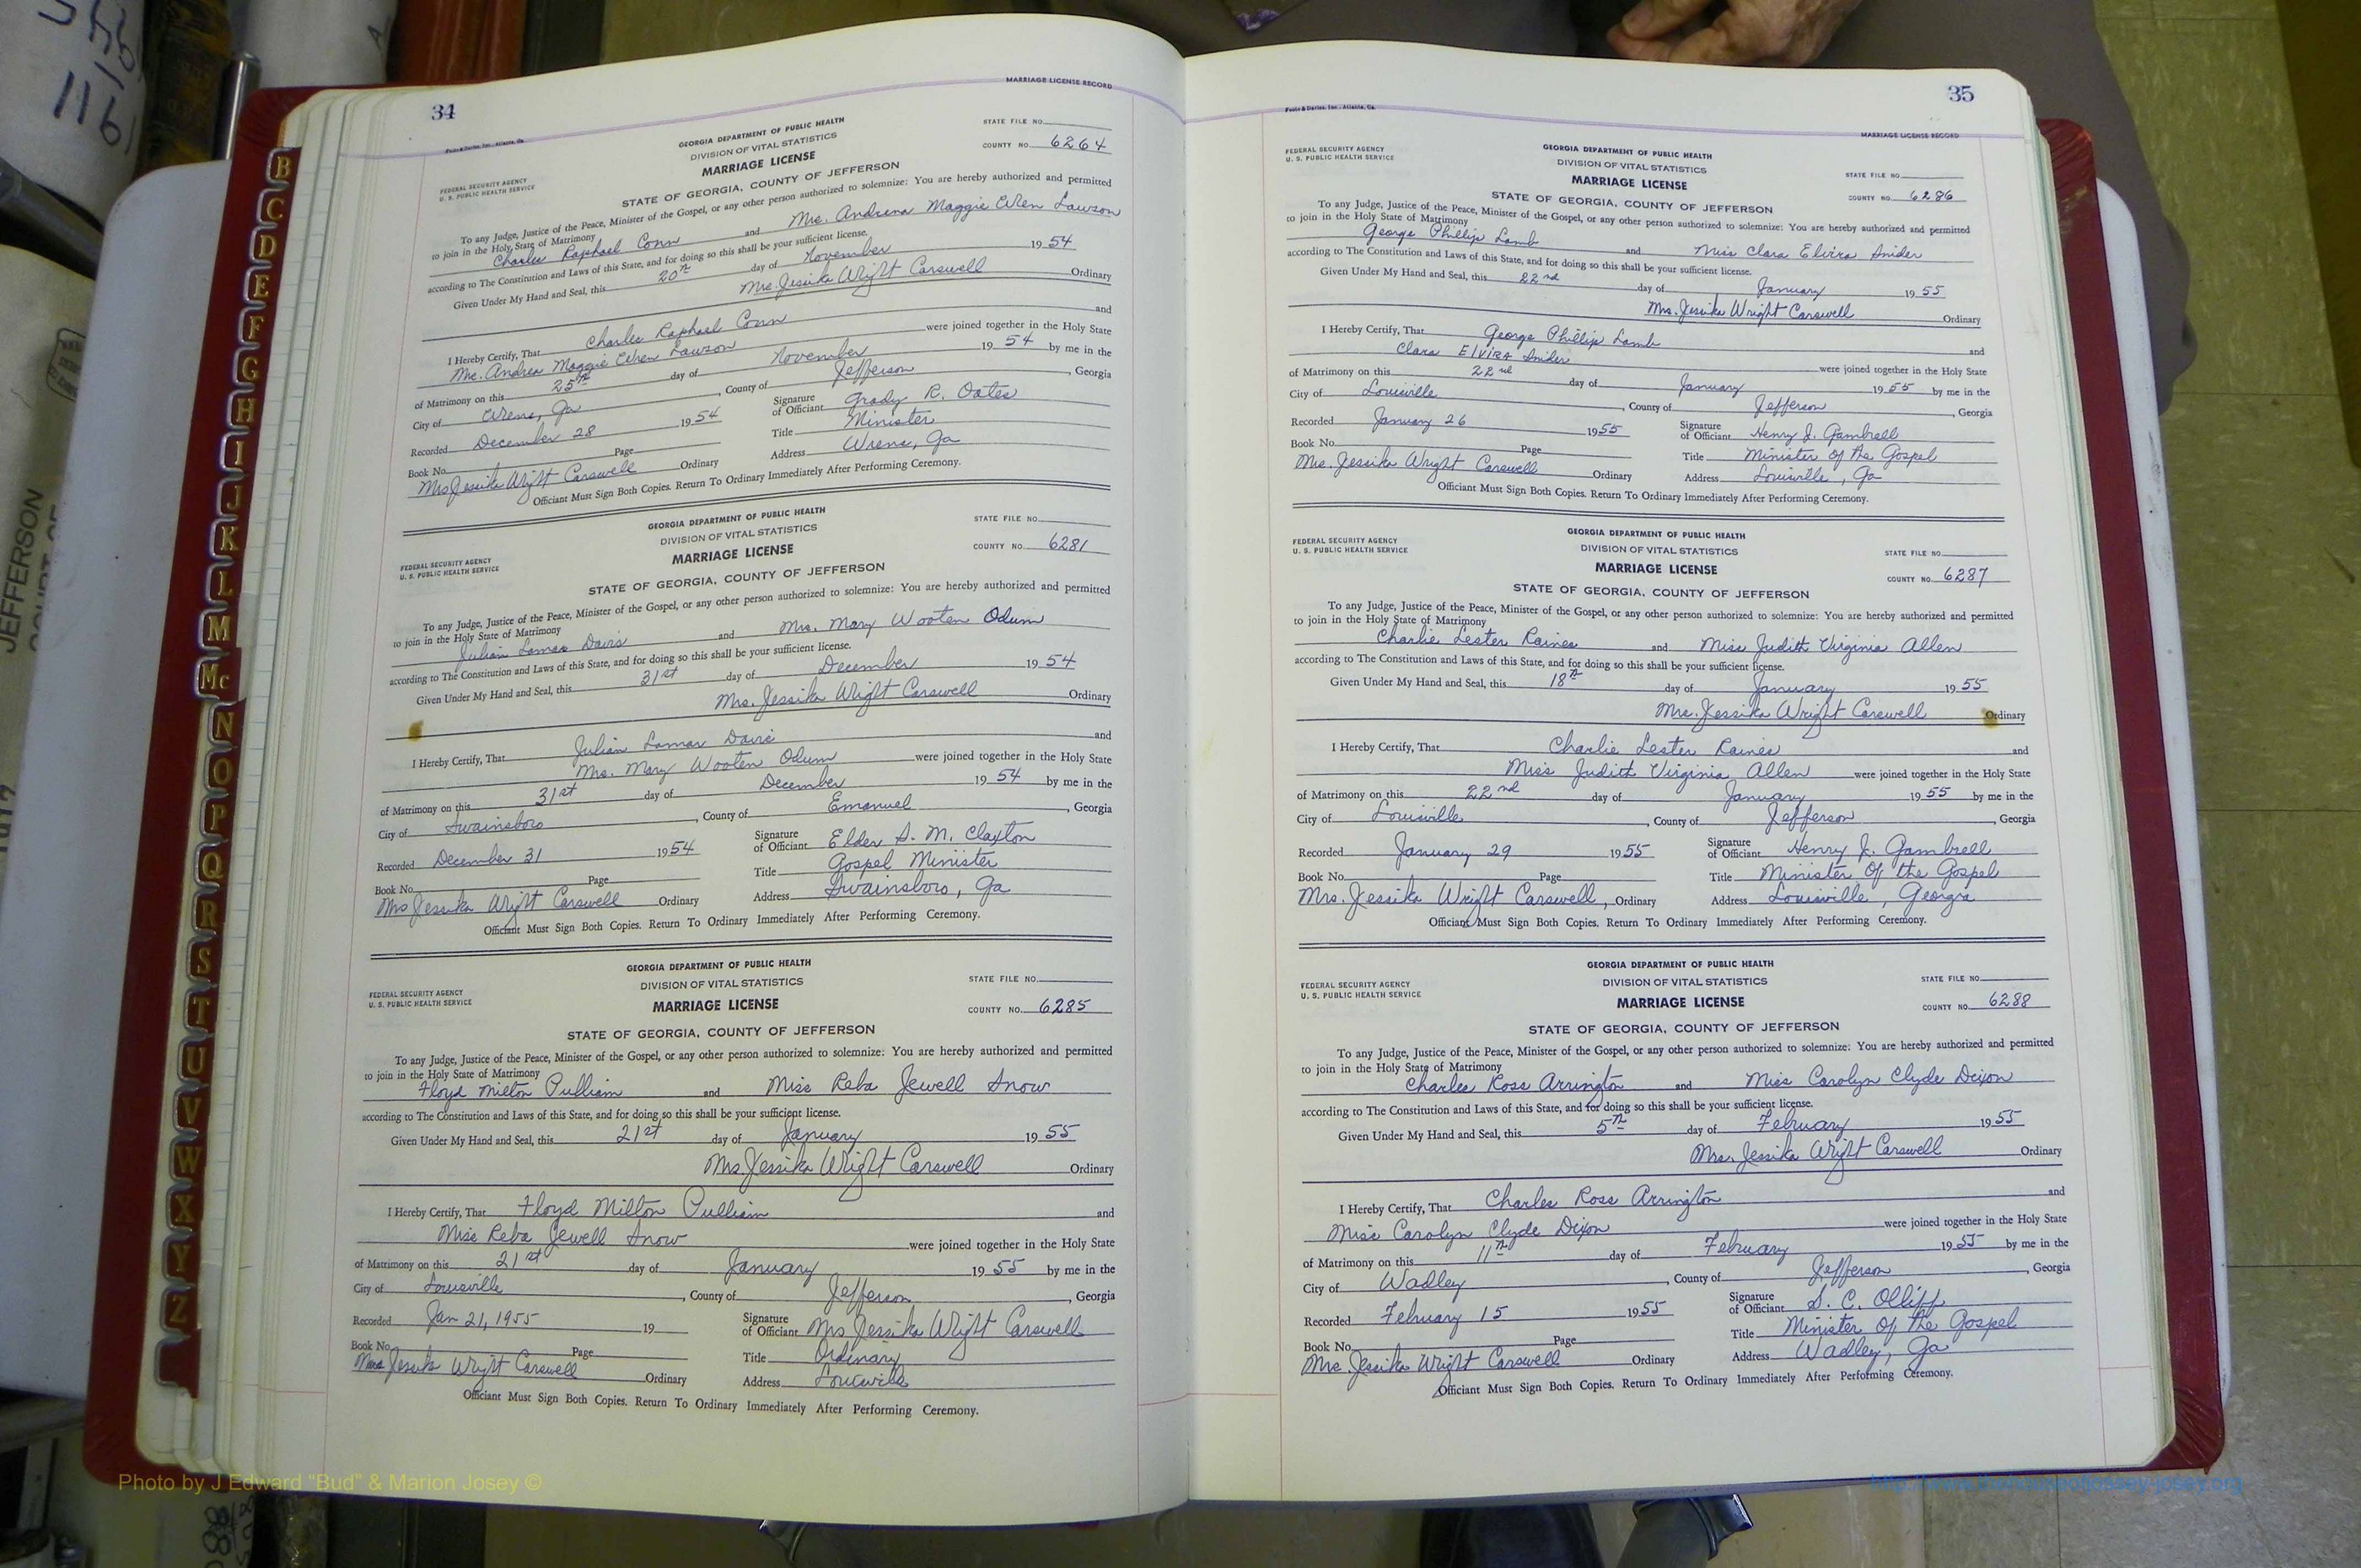 34
MARRIAGE LICENSE RECORD
Foote & Davies, Inc., Atlanta, Ga.
GEORGIA DEPARTMENT OF PUBLIC HEALTH
DIVISION OF VITAL STATISTICS
MARRIAGE LICENSE
STATE FILE NO.
COUNTY NO. 6264
FEDERAL SECURITY AGENCY
U. S. PUBLIC HEALTH SERVICE
STATE OF GEORGIA, COUNTY OF JEFFERSON
To any Judge, Justice of the Peace, Minister of the Gospel, or any other person authorized to solemnize: You are hereby authorized and permitted
to join in the Holy State of Matrimony
Charlie Raphael Conn and Mrs. Andrena Maggie Wren Lawson
according to The Constitution and Laws of this State, and for doing so this shall be your sufficient license.
Given Under My Hand and Seal, this 20th day of November 1954
Mrs. Jessika Wright Carswell Ordinary
I Hereby Certify, That Charlie Raphael Conn and
Mrs. Andrea Maggie Wren Lawson were joined together in the Holy State
of Matrimony on this 25th day of November 1954 by me in the
City of Wrens, Ga, County of Jefferson, Georgia
Recorded December 28 1954 Signature of Officiant Grady R. Oates
Book No. Page Title Minister
Mrs Jessika Wright Carswell Ordinary Address Wrens, Ga
Officiant Must Sign Both Copies. Return To Ordinary Immediately After Performing Ceremony.
GEORGIA DEPARTMENT OF PUBLIC HEALTH
DIVISION OF VITAL STATISTICS
MARRIAGE LICENSE
STATE FILE NO.
COUNTY NO. 6281
FEDERAL SECURITY AGENCY
U. S. PUBLIC HEALTH SERVICE
STATE OF GEORGIA, COUNTY OF JEFFERSON
To any Judge, Justice of the Peace, Minister of the Gospel, or any other person authorized to solemnize: You are hereby authorized and permitted
to join in the Holy State of Matrimony
Julian Lamar Davis and Mrs. Mary Wooten Odum
according to The Constitution and Laws of this State, and for doing so this shall be your sufficient license.
Given Under My Hand and Seal, this 31st day of December 1954
Mrs. Jessika Wright Carswell Ordinary
I Hereby Certify, That Julian Lamar Davis and
Mrs. Mary Wooten Odum were joined together in the Holy State
of Matrimony on this 31st day of December 1954 by me in the
City of Swainsboro, County of Emanuel, Georgia
Recorded December 31 1954 Signature of Officiant Elder S. M. Claxton
Book No. Page Title Gospel Minister
Mrs Jessika Wright Carswell Ordinary Address Swainsboro, Ga
Officiant Must Sign Both Copies. Return To Ordinary Immediately After Performing Ceremony.
GEORGIA DEPARTMENT OF PUBLIC HEALTH
DIVISION OF VITAL STATISTICS
MARRIAGE LICENSE
STATE FILE NO.
COUNTY NO. 6285
FEDERAL SECURITY AGENCY
U. S. PUBLIC HEALTH SERVICE
STATE OF GEORGIA, COUNTY OF JEFFERSON
To any Judge, Justice of the Peace, Minister of the Gospel, or any other person authorized to solemnize: You are hereby authorized and permitted
to join in the Holy State of Matrimony
Floyd Milton Pulliam and Miss Reba Jewell Snow
according to The Constitution and Laws of this State, and for doing so this shall be your sufficient license.
Given Under My Hand and Seal, this 21st day of January 1955
Mrs Jessika Wright Carswell Ordinary
I Hereby Certify, That Floyd Milton Pulliam and
Miss Reba Jewell Snow were joined together in the Holy State
of Matrimony on this 21st day of January 1955 by me in the
City of Louisville, County of Jefferson, Georgia
Recorded Jan 21, 1955 19 Signature of Officiant Mrs Jessika Wright Carswell
Book No. Page Title Ordinary
Mrs Jessika Wright Carswell Ordinary Address Louisville
Officiant Must Sign Both Copies. Return To Ordinary Immediately After Performing Ceremony.
35
Foote & Davies, Inc., Atlanta, Ga.
MARRIAGE LICENSE RECORD
FEDERAL SECURITY AGENCY
U. S. PUBLIC HEALTH SERVICE
GEORGIA DEPARTMENT OF PUBLIC HEALTH
DIVISION OF VITAL STATISTICS
MARRIAGE LICENSE
STATE FILE NO.
COUNTY NO. 6286
STATE OF GEORGIA, COUNTY OF JEFFERSON
To any Judge, Justice of the Peace, Minister of the Gospel, or any other person authorized to solemnize: You are hereby authorized and permitted
to join in the Holy State of Matrimony
George Phillip Lamb and Miss Clara Elvira Snider
according to The Constitution and Laws of this State, and for doing so this shall be your sufficient license.
Given Under My Hand and Seal, this 22nd day of January 1955
Mrs. Jessika Wright Carswell Ordinary
I Hereby Certify, That George Phillip Lamb and
Clara Elvira Snider were joined together in the Holy State
of Matrimony on this 22nd day of January 1955 by me in the
City of Louisville, County of Jefferson, Georgia
Recorded January 26 1955 Signature of Officiant Henry J. Gambrell
Book No. Page Title Minister of the Gospel
Mrs. Jessika Wright Carswell Ordinary Address Louisville, Ga
Officiant Must Sign Both Copies. Return To Ordinary Immediately After Performing Ceremony.
GEORGIA DEPARTMENT OF PUBLIC HEALTH
DIVISION OF VITAL STATISTICS
MARRIAGE LICENSE
FEDERAL SECURITY AGENCY
U. S. PUBLIC HEALTH SERVICE
STATE FILE NO.
COUNTY NO. 6287
STATE OF GEORGIA, COUNTY OF JEFFERSON
To any Judge, Justice of the Peace, Minister of the Gospel, or any other person authorized to solemnize: You are hereby authorized and permitted
to join in the Holy State of Matrimony
Charlie Lester Raines and Miss Judith Virginia Allen
according to The Constitution and Laws of this State, and for doing so this shall be your sufficient license.
Given Under My Hand and Seal, this 18th day of January 1955
Mrs. Jessika Wright Carswell Ordinary
I Hereby Certify, That Charlie Lester Raines and
Miss Judith Virginia Allen were joined together in the Holy State
of Matrimony on this 22nd day of January 1955 by me in the
City of Louisville, County of Jefferson, Georgia
Recorded January 29 1955 Signature of Officiant Henry J. Gambrell
Book No. Page Title Minister Of the Gospel
Mrs. Jessika Wright Carswell, Ordinary Address Louisville, Georgia
Officiant Must Sign Both Copies. Return To Ordinary Immediately After Performing Ceremony.
GEORGIA DEPARTMENT OF PUBLIC HEALTH
DIVISION OF VITAL STATISTICS
MARRIAGE LICENSE
FEDERAL SECURITY AGENCY
U. S. PUBLIC HEALTH SERVICE
STATE FILE NO.
COUNTY NO. 6288
STATE OF GEORGIA, COUNTY OF JEFFERSON
To any Judge, Justice of the Peace, Minister of the Gospel, or any other person authorized to solemnize: You are hereby authorized and permitted
to join in the Holy State of Matrimony
Charles Ross Arrington and Miss Carolyn Clyde Dixon
according to The Constitution and Laws of this State, and for doing so this shall be your sufficient license.
Given Under My Hand and Seal, this 5th day of February 1955
Mrs. Jessika Wright Carswell Ordinary
I Hereby Certify, That Charles Ross Arrington and
Miss Carolyn Clyde Dixon were joined together in the Holy State
of Matrimony on this 11th day of February 1955 by me in the
City of Wadley, County of Jefferson, Georgia
Recorded February 15 1955 Signature of Officiant S. C. Olliff
Book No. Page Title Minister Of the Gospel
Mrs. Jessika Wright Carswell Ordinary Address Wadley, Ga
Officiant Must Sign Both Copies. Return To Ordinary Immediately After Performing Ceremony.
B
C
D
E
F
G
H
I
J
K
L
M
Mc
N
O
P
Q
R
S
T
U
V
W
X
Y
Z
JEFFERSON
Photo by J Edward "Bud" & Marion Josey ©